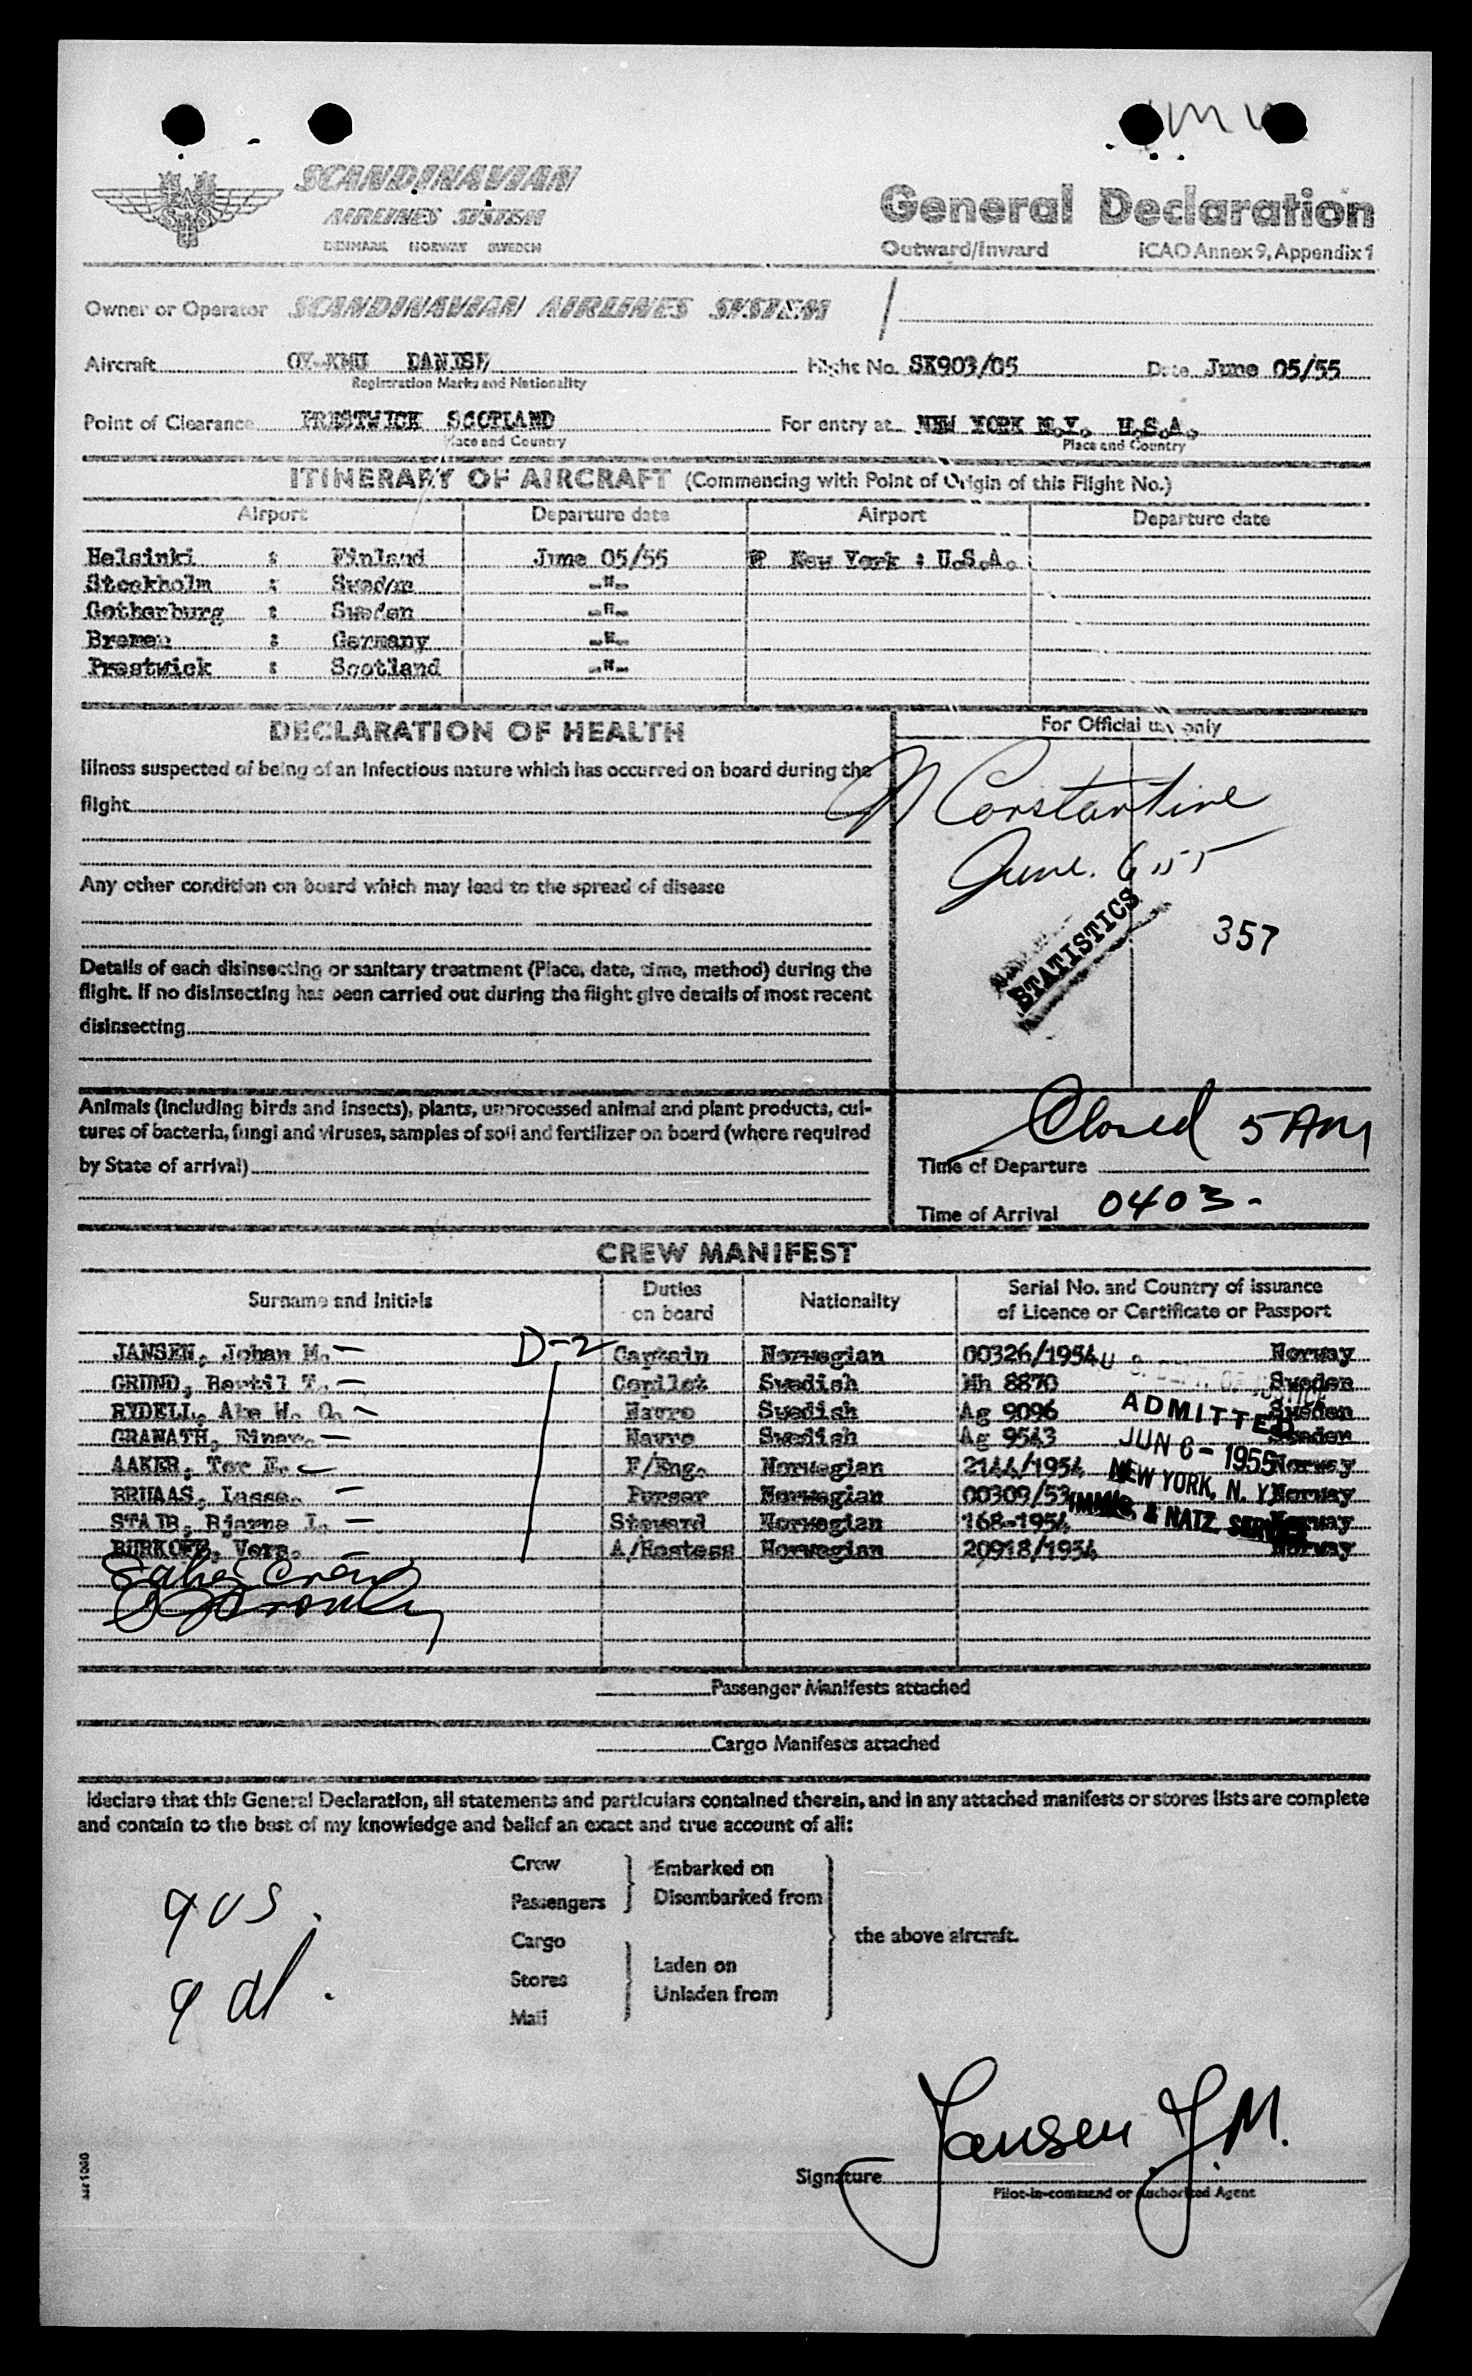 SCANDINAVIAN
AIRLINES SYSTEM
DENMARK NORWAY SWEDEN
SAS
General Declaration
Outward/Inward ICAO Annex 9, Appendix 1
Owner or Operator SCANDINAVIAN AIRLINES SYSTEM
Aircraft OY-KMU DANISH Flight No. SK903/05 Date June 05/55
Registration Marks and Nationality
Point of Clearance PRESTWICK SCOTLAND For entry at NEW YORK N.Y. U.S.A.
Place and Country Place and Country
ITINERARY OF AIRCRAFT (Commencing with Point of Origin of this Flight No.)
Airport Departure date Airport Departure date
Helsinki : Finland June 05/55 New York : U.S.A.
Stockholm : Sweden -"-
Gothenburg : Sweden -"-
Bremen : Germany -"-
Prestwick : Scotland -"-
DECLARATION OF HEALTH
Illness suspected of being of an infectious nature which has occurred on board during the
flight
Any other condition on board which may lead to the spread of disease
Details of each disinsecting or sanitary treatment (Place, date, time, method) during the
flight. If no disinsecting has been carried out during the flight give details of most recent
disinsecting
Animals (including birds and insects), plants, unprocessed animal and plant products, cul-
tures of bacteria, fungi and viruses, samples of soil and fertilizer on board (where required
by State of arrival)
For Official use only
N Constantine
June. 6, 55
STATISTICS
357
Closed 5 AM
Time of Departure
Time of Arrival 0403-
CREW MANIFEST
Surname and Initials Duties on board Nationality Serial No. and Country of issuance of Licence or Certificate or Passport
D-2
JANSEN, Johan M. Captain Norwegian 00326/1954 Norway
GRUND, Bertil T. Copilot Swedish Mh 8870 Sweden
RYDELL, Ake W. O. Navro Swedish Ag 9096 Sweden
GRANATH, Einar. Navro Swedish Ag 9543 Sweden
AAKER, Tor E. F/Eng. Norwegian 2144/1954 Norway
BRUAAS, Lasse. Purser Norwegian 00309/53 Norway
STAIB, Bjarne L. Steward Norwegian 168-1954 Norway
BURKOFF, Vera. A/Hostess Norwegian 20918/1954 Norway
ADMITTED
JUN 6 - 1955
NEW YORK, N. Y.
IMMIG. & NATZ. SERVICE
Passenger Manifests attached
Cargo Manifests attached
I declare that this General Declaration, all statements and particulars contained therein, and in any attached manifests or stores lists are complete
and contain to the best of my knowledge and belief an exact and true account of all:
Crew
Passengers
Embarked on
Disembarked from
Cargo
Stores
Mail
Laden on
Unladen from
the above aircraft.
9 US.
9 al.
Jansen J.M.
Signature
Pilot-in-command or Authorized Agent